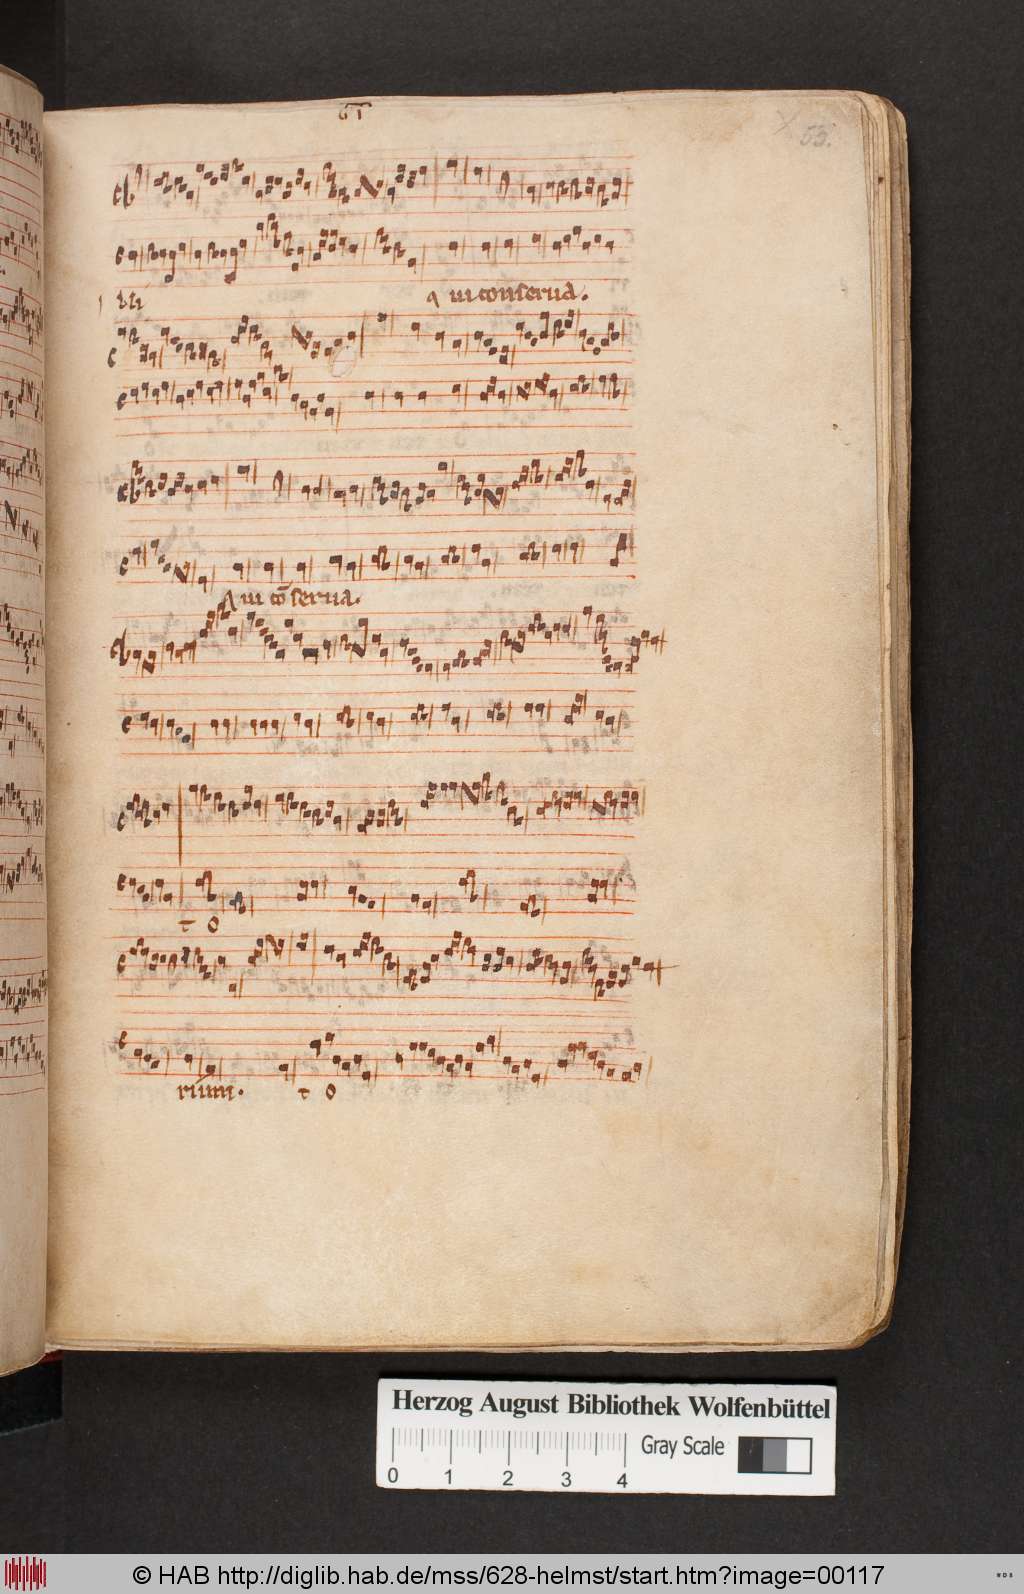 61
53.
bli qui conserua.
Qui cōserua.
t o
rium. t o
Herzog August Bibliothek Wolfenbüttel
Gray Scale
0 1 2 3 4
© HAB http://diglib.hab.de/mss/628-helmst/start.htm?image=00117